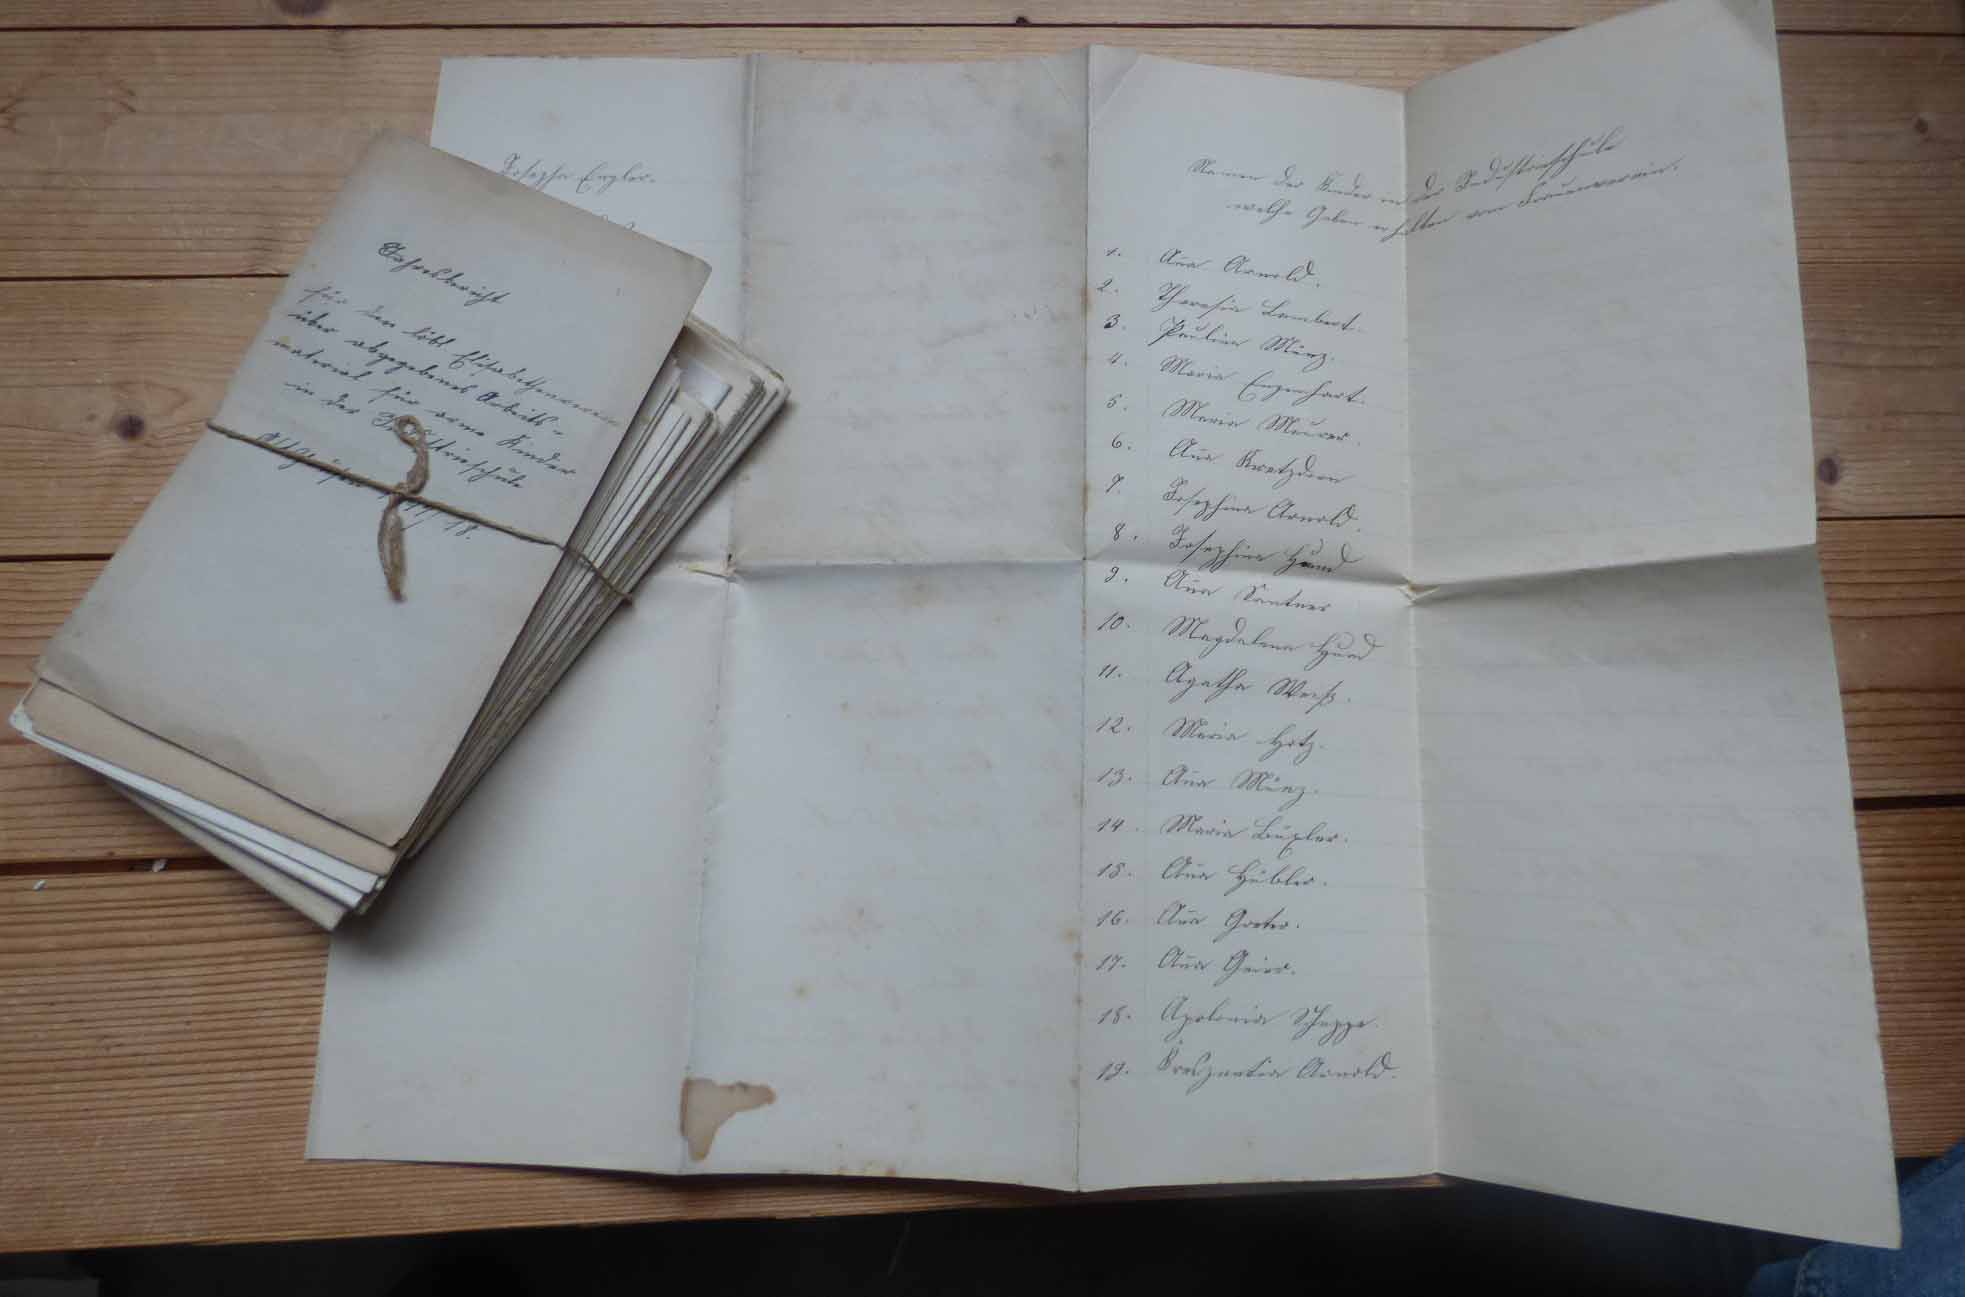 Jahresbericht
für den löbl Elisabethenverein
über abgegebenes Arbeits-
material für arme Kinder
in der Industrieschule
18.
Josepha Engler.
Namen der Kinder in der Industrieschule
welche Gaben erhalten vom Frauenverein.
1. Anna Arnold.
2. Theresia Lambert.
3. Paulina Münz.
4. Maria Engenhart.
5. Maria Maurer.
6. Anna Kretzdorn
7. Josephina Arnold.
8. Josephina Hund
9. Anna Kantner
10. Magdalena Hund
11. Agatha Weiß.
12. Maria Hotz.
13. Anna Münz.
14. Maria Bugler.
15. Anna Hübler.
16. Anna Greter.
17. Anna Geier.
18. Apolonia Schuppe.
19. Kreszentia Arnold.